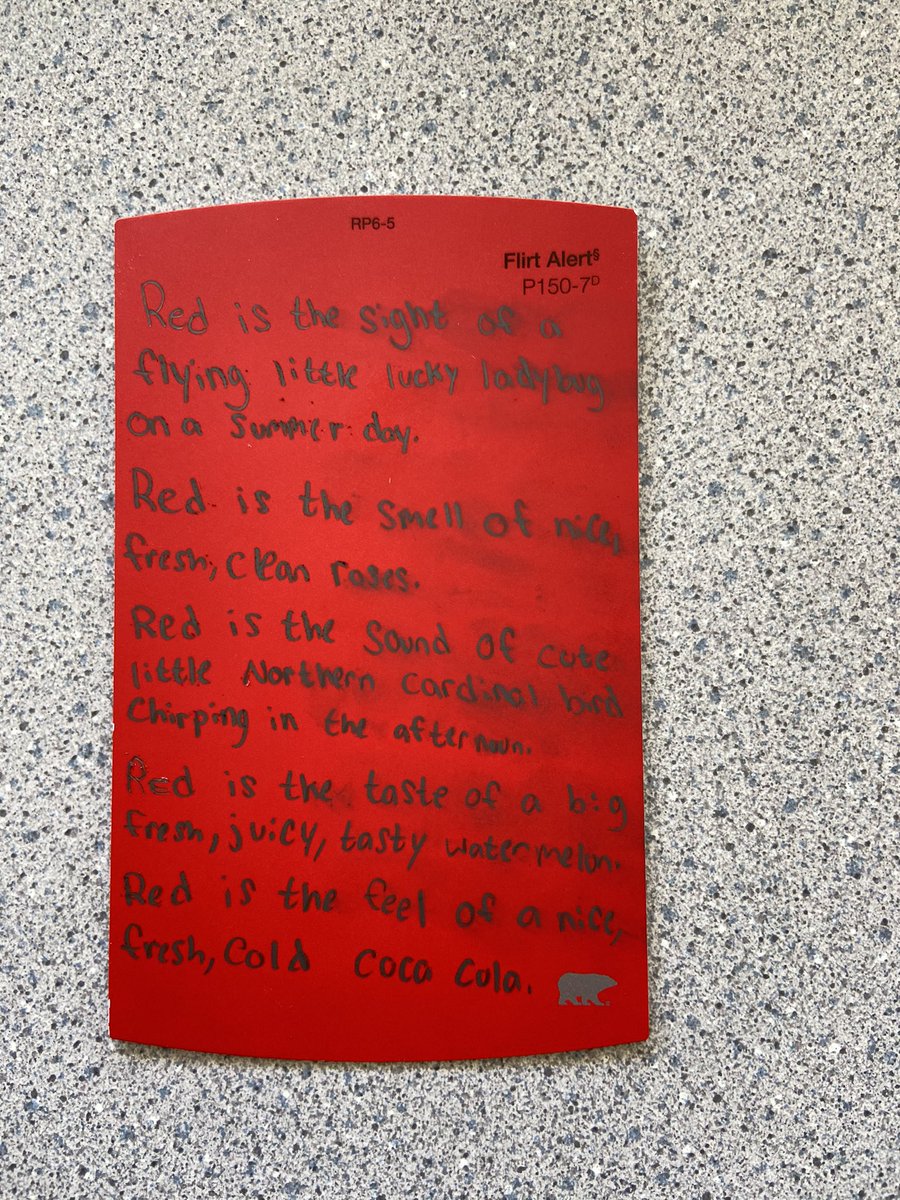 RP6-5
Flirt Alert§
P150-7ᴰ
Red is the sight of a
flying little lucky ladybug
on a summer day.
Red is the smell of nice,
fresh, clean roses.
Red is the sound of cute
little Northern Cardinal bird
Chirping in the afternoun.
Red is the taste of a big
fresh, juicy, tasty watermelon.
Red is the feel of a nice,
fresh, cold Coca Cola.